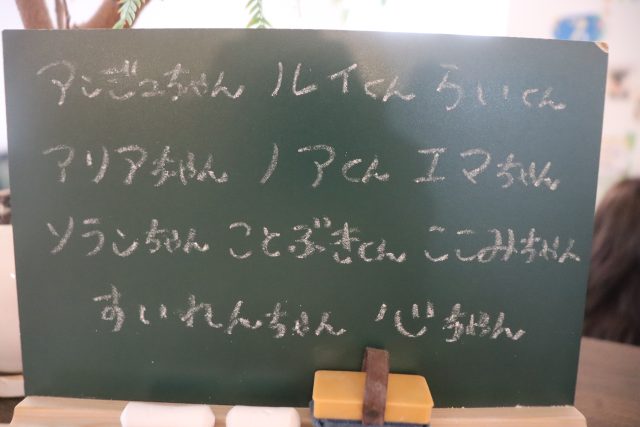 アンジュちゃん ルイくん らいくん
マリアちゃん ノアくん エマちゃん
ソランちゃん ことぶきくん ここみちゃん
すいれんちゃん 心ちゃん